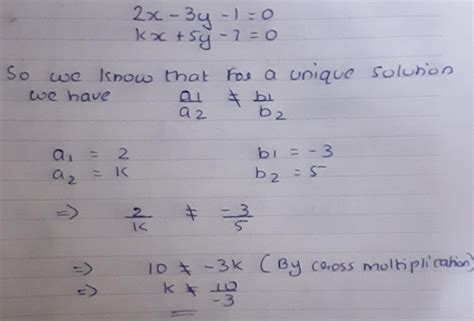 2x - 3y - 1 = 0
kx + 5y - 7 = 0
So we know that for a unique solution
we have a1/a2 ≠ b1/b2
a1 = 2 b1 = -3
a2 = K b2 = 5
=> 2/K ≠ -3/5
=> 10 ≠ -3K (By cross moltiplication)
=> K ≠ 10/-3